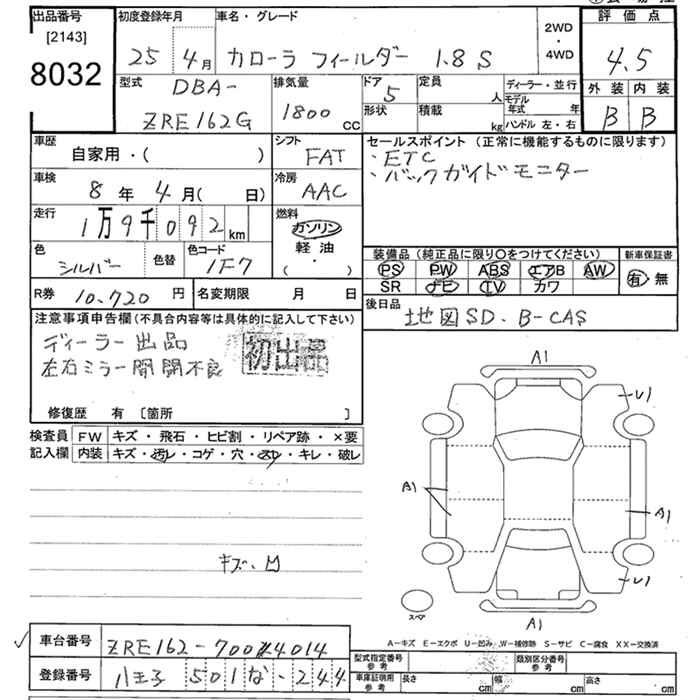 出品番号 初度登録年月 車名・グレード 評価点
[2143]
8032
25 4月 カローラ フィールダー 1.8 S 2WD・4WD 4.5
型式 DBA- 排気量 ドア 定員 ディーラー・並行 外装 内装
5 人 モデル年式 年
ZRE162G 1800 cc 形状 積載 kg ハンドル 左・右 B B
車歴 自家用・( ) シフト FAT セールスポイント (正常に機能するものに限ります)
・ETC
・バックガイドモニター
車検 8年 4月( 日) 冷房 AAC
走行 1万9千092km 燃料 ガソリン
軽油
( ・ )
色 シルバー 色替 色コード 1F7
装備品 (純正品に限り〇をつけてください) 新車保証書
PS PW ABS エアB AW 有 無
SR ナビ TV カワ
R券 10,720円 名変期限 月 日
後日品 地図SD、B-CAS
注意事項申告欄 (不具合内容等は具体的に記入して下さい)
ディーラー出品
初出品
左右ミラー開閉不良
修復歴 有 [箇所 ]
検査員記入欄 FW キズ・飛石・ヒビ割・リペア跡・×要
内装 キズ・汚レ・コゲ・穴・スレ・キレ・破レ
A1
U1
A1
A1
U1
A1
キズ、凹
スペア
A-キズ E-エクボ U-凹み W-補修跡 S-サビ C-腐食 XX-交換済
車台番号 ZRE162-7004014
型式指定番号 参考 類別区分番号 参考
登録番号 八王子 501 な・244
車庫証明用 参考 長さ cm 幅 cm 高さ cm